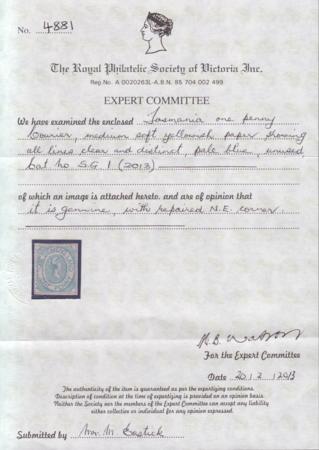 No. 4881
The Royal Philatelic Society of Victoria Inc.
Reg.No. A 0020263L-A.B.N. 85 704 002 499
EXPERT COMMITTEE
We have examined the enclosed Tasmania one penny
Courier, medium soft yellowish paper showing
all lines clear and distinct, pale blue, unused
Cat no S.G. 1 (2013)
of which an image is attached hereto. and are of opinion that
it is genuine, with repaired N.E. corner.
For the Expert Committee
Date 20.2.2013
The authenticity of the item is guaranteed as per the expertizing conditions.
Description of condition at the time of expertizing is provided on an opinion basis.
Neither the Society nor the members of the Expert Committee can accept any liability
either collective or individual for any opinion expressed.
Submitted by Mr. M Eastick